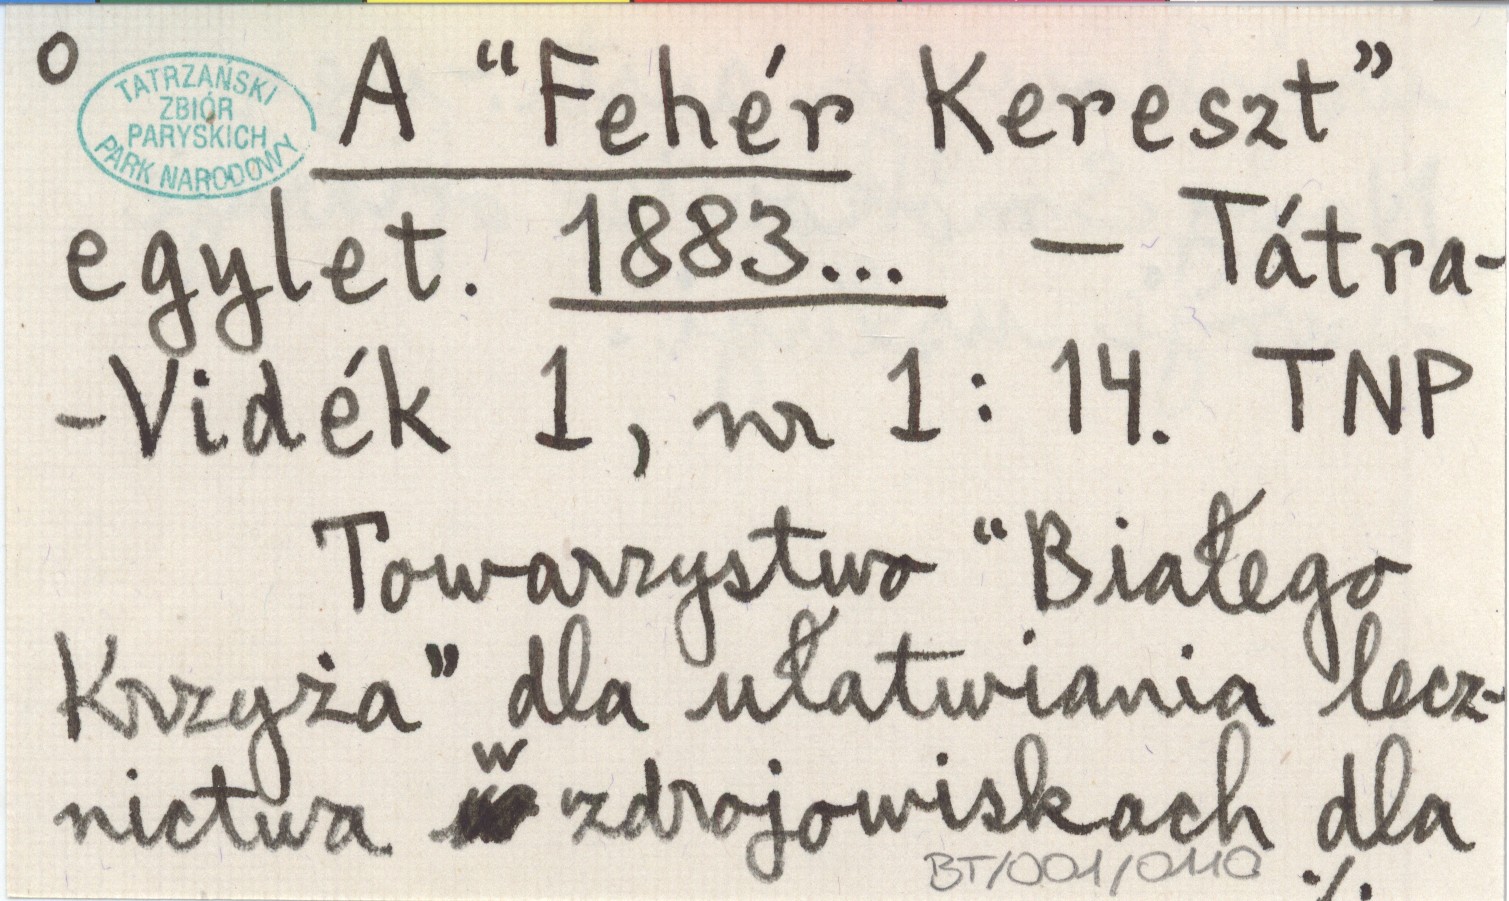 O
TATRZAŃSKI
ZBIÓR
PARYSKICH
PARK NARODOWY
A “Fehér Kereszt”
egylet. 1883... — Tátra-
-Vidék 1, nr 1 : 14. TNP
Towarzystwo “Białego
Krzyża” dla ułatwiania lecz-
nictwa w zdrojowiskach dla
BT/001/0110
./.